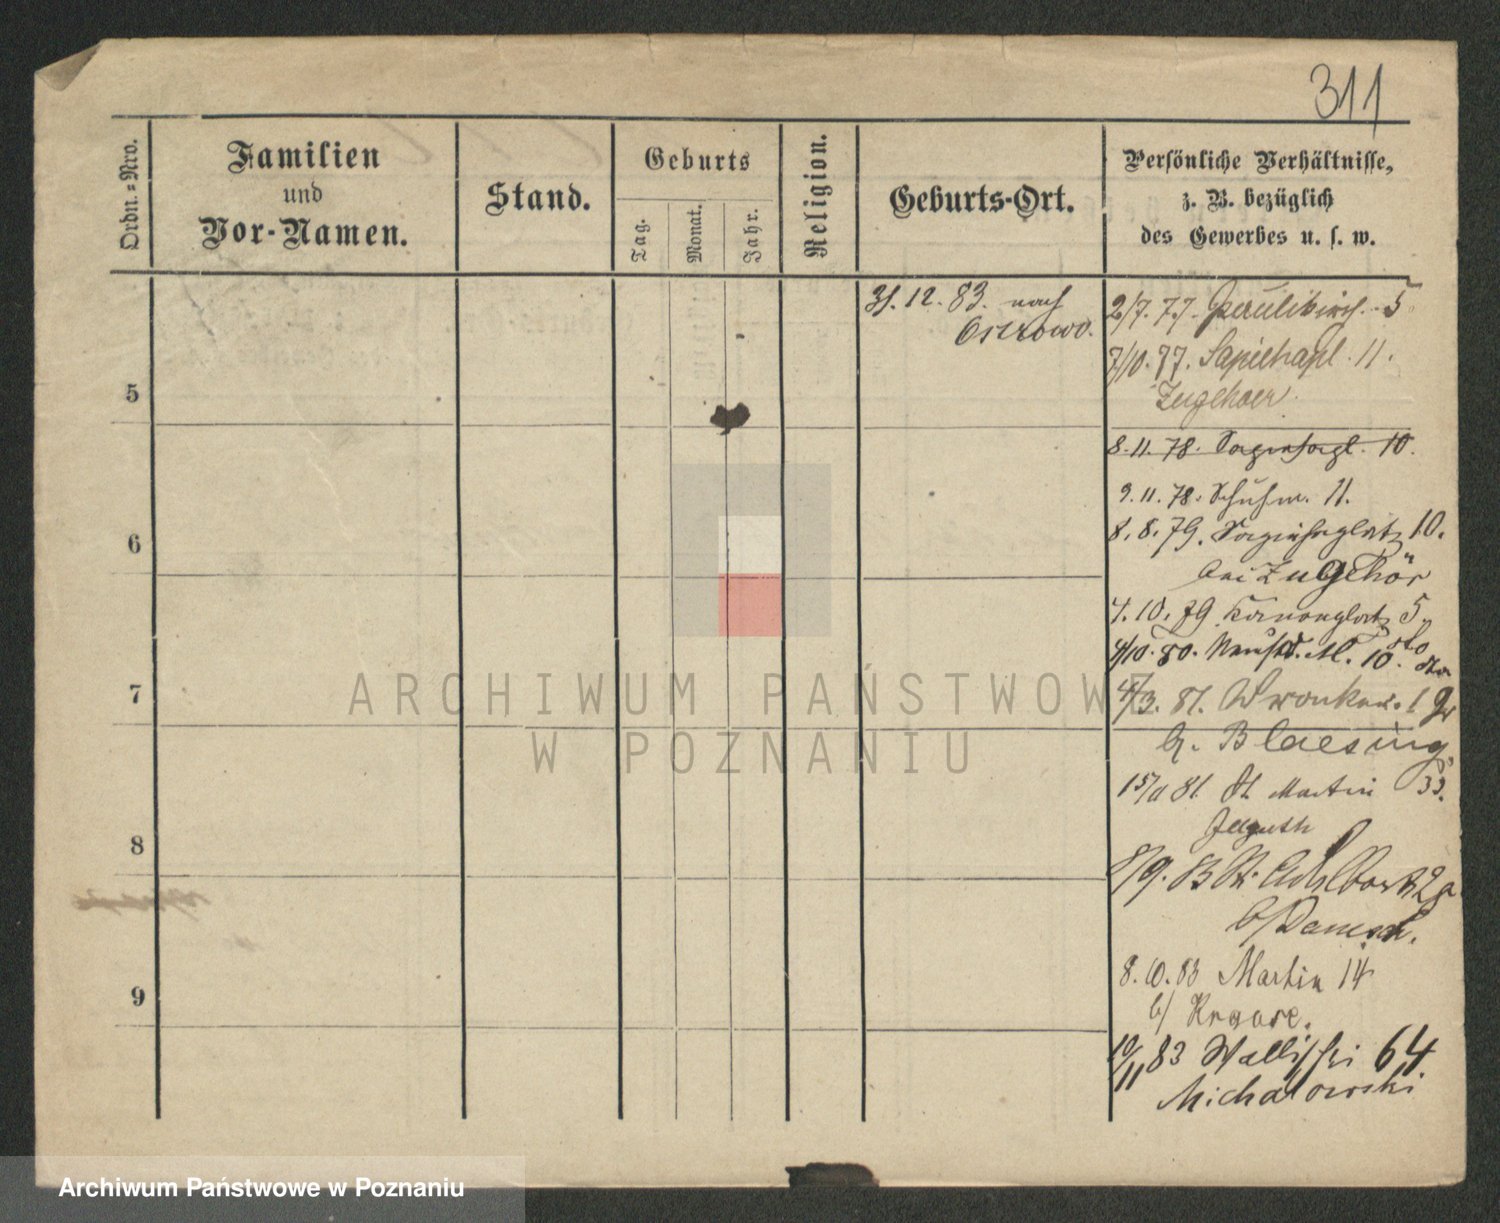 311
Ordn.=Nro.
Familien
und
Vor-Namen.
Stand.
Geburts
Tag.
Monat.
Jahr.
Religion.
Geburts-Ort.
Persönliche Verhältnisse,
z. B. bezüglich
des Gewerbes u. s. w.
31. 12. 83. nach
Ostrowo.
2/7. 77. Paulikirch. 5
7/10. 77. Sapiehapl. 11.
Zugehoer
5
8. 11. 78. 10.
9. 11. 78. Schuhm. 11.
6
8. 8. 79. Sapiehaplatz 10.
bei Zugehör
4. 10. 79 Kanonplatz 5.
4/10. 80. Neust. M. 10.
7
4/3. 81. Wronker. 1
b. Blaesing
15/11 81. St. Martin 33.
8
8/9. 83 St. Adalbert 2a
b/
8. 10. 83 Martin 14
9
b/ Krause.
10/11 83 Wallischei 64
Michalowski
ARCHIWUM PAŃSTWOWE
W POZNANIU
Archiwum Państwowe w Poznaniu